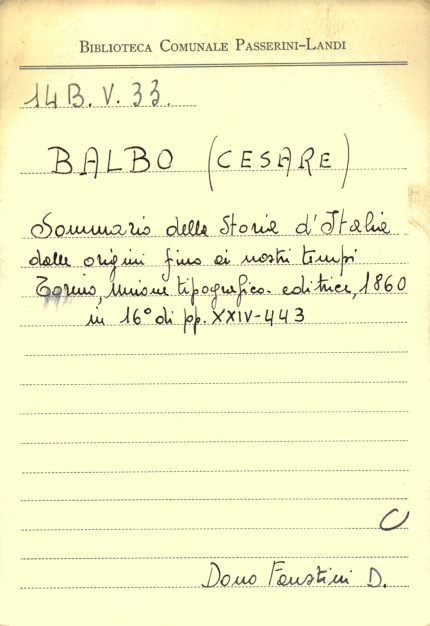 BIBLIOTECA COMUNALE PASSERINI-LANDI
14 B. V. 33.
BALBO (CESARE)
Sommario della Storia d'Italia
dalle origini fino ai nostri tempi
Torino, Unione tipografico-editrice, 1860
in 16° di pp. XXIV-443
C
Dono Faustini D.